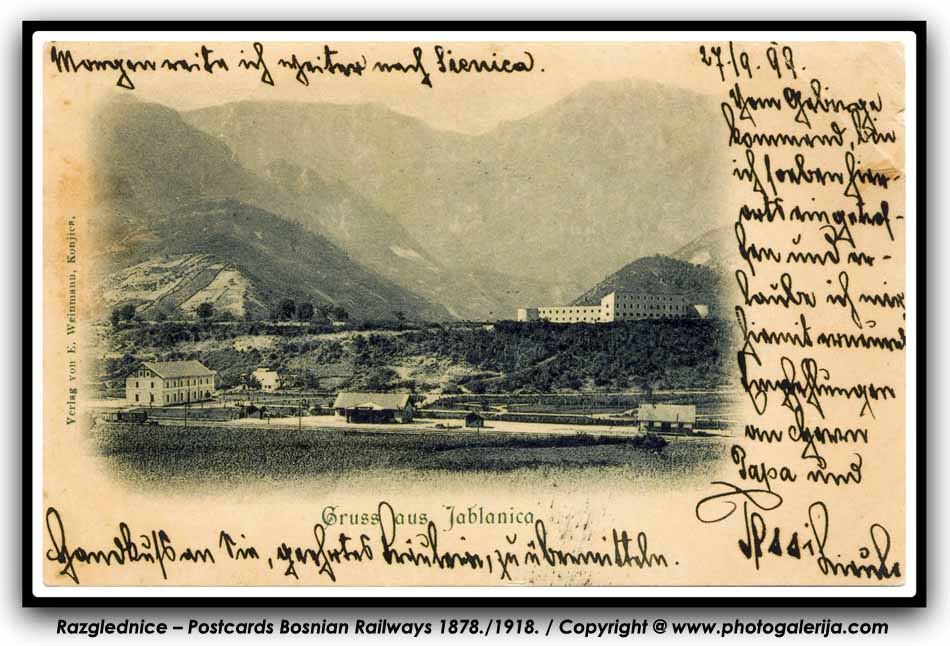 Morgen reite ich weiter nach Sienica.
27/9. 98.
Vom Gebirge
kommend, bin
ich soeben hier-
orts eingetrof-
fen und er-
laube ich mir
hiemit erneuert
Empfehlungen
an Herrn
Papa und
Handkuß an Sie, geehrtes Fräulein, zu übermitteln.
Verlag von E. Weinmann, Konjica.
Gruss aus Jablanica
Razglednice – Postcards Bosnian Railways 1878./1918. / Copyright @ www.photogalerija.com